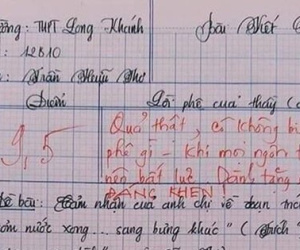 ờng: THPT Long Khánh Bài Viết
: 12B10
: Trần Thụy Thơ
Điểm Lời phê của thầy (c
9,5
Quả thật, cô không bi
phê gì - khi mọi ngôn t
nên bất lực. Đành tặng
ĐÁNG KHEN!
ề bài: Cảm nhận của anh chị về đoạn trích
ồm nước xong... sang bưng khuc" (trích